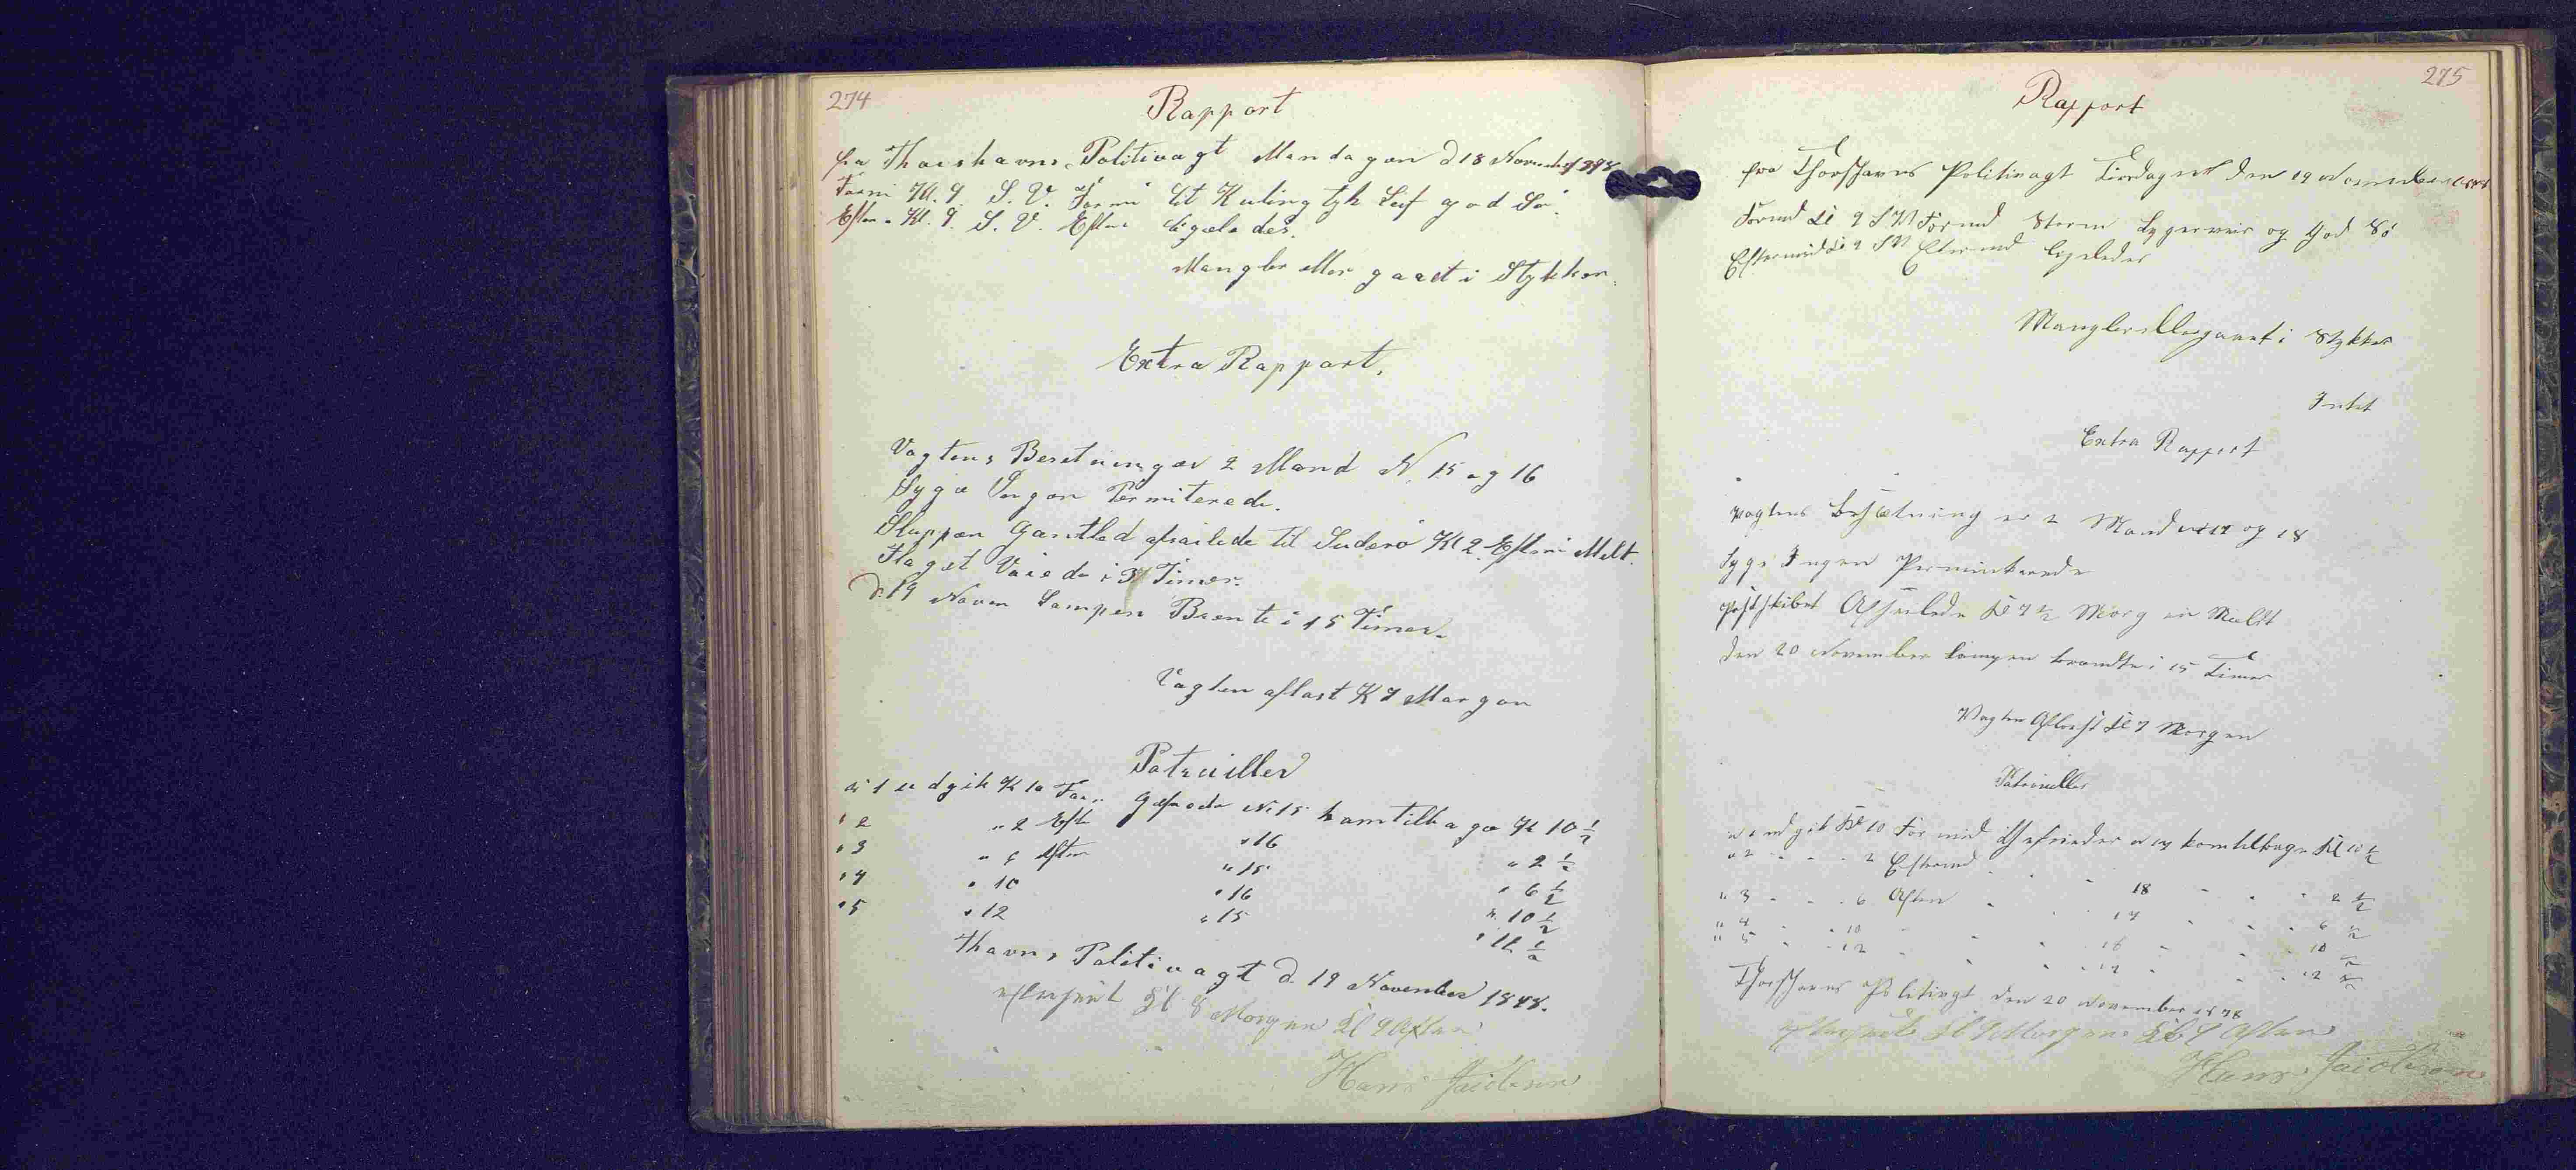 274
Rapport
fra Thorshavns Politivagt Mandagen d 18 November 1878
Formi Kl. 9. S. V. Formi lit Kuling tyk Luf god Sö.
Efter. Kl. 9. S. V. Eftmi ligeledes.
Mangler eller gaaet i Stykker.
Extra Rapport.
Vagtens Besetning er 2 Mand N. 15 og 16
Syge Ingen Permiterede.
Sluppen Gæstlad afsailede til Suderö Kl 2 Eftmi Melt.
Flaget Vaiede i 3 Timer.
D. 19 Novem Lampen Brente i 15 Timer.
Vagten aflöst K 7 Morgen
Patruiller
No 1 udgik K 10 For. Gefreder No 15 kom tilbage K 10 ½
" 2 " 2 Eft " 16 " 2 ½
" 3 " 6 Aften " 15 " 6 ½
" 4 " 10 " 16 " 10 ½
" 5 " 12 " 15 " 12 ½
Thavns Politivagt d. 19 November 1878.
efterseet Kl 8 Morgen Kl 9 Aften
Hans Jacobsen
275
Rapport
fra Thorshavns Politivagt Tirsdagen den 19 November 1878
Formd Kl 9 SW Formd Storm Bygerveir og God Sö
Eftermid Kl 9 SW Eftermd ligeledes
Mangler eller gaaet i Stykker
Intet
Extra Rapport
Vagtens Besætning er 2 Mand No 17 og 18
Syge Ingen Permitterede
Postskibet Afseilede Kl 7 ½ Morg er Meldt
Den 20 November Lampen brændte i 15 Timer
Vagten Aflöst Kl 7 Morgen
Patrouiller
No 1 udgik Kl 10 Formid Gefreider No 17 kom tilbage Kl 10 ½
" 2 " " 2 Eftermd " 18 " " 2 ½
" 3 " " 6 Aften " 17 " " 6 ½
" 4 " " 10 " " 18 " " 10 ½
" 5 " " 12 " " 17 " " 12 ½
Thorshavns Politivagt den 20 November 1878
efterseet Kl Morgen Kl 9 Aften
Hans Jacobsen